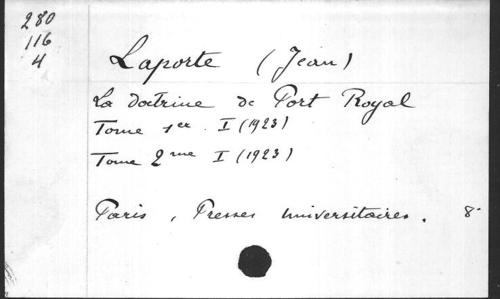 280
116
4
Laporte (Jean)
La doctrine de Port Royal
Tome 1er. I (1923)
Tome 2me I (1923)
Paris, Presses universitaires. 8°